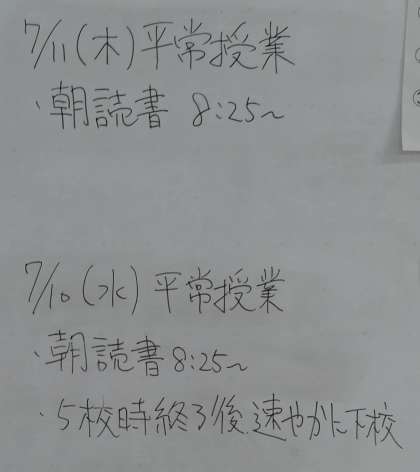 7/11(木)平常授業
・朝読書 8:25~
7/10(水)平常授業
・朝読書 8:25~
・5校時終了後速やかに下校